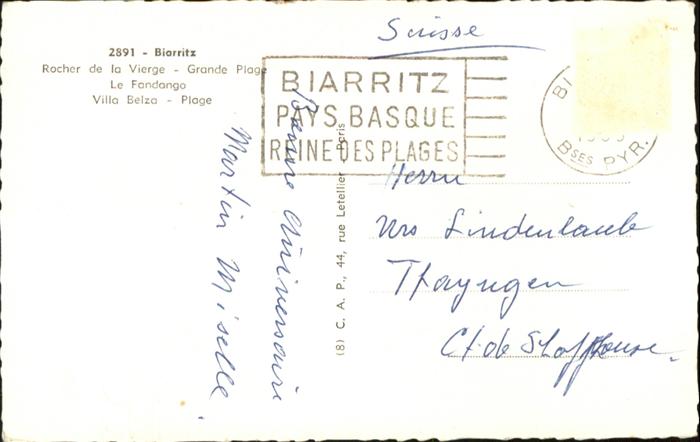 2891 - Biarritz
Rocher de la Vierge - Grande Plage
Le Fandango
Villa Belza - Plage
Suisse
BIARRITZ
PAYS BASQUE
REINE DES PLAGES
BI
BSES PYR.
Bonne Aniversaire
Martin Miselle.
(8) C. A. P., 44, rue Letellier - Paris
Herrn
Urs Lindenlaub
Thayngen
Ct. de